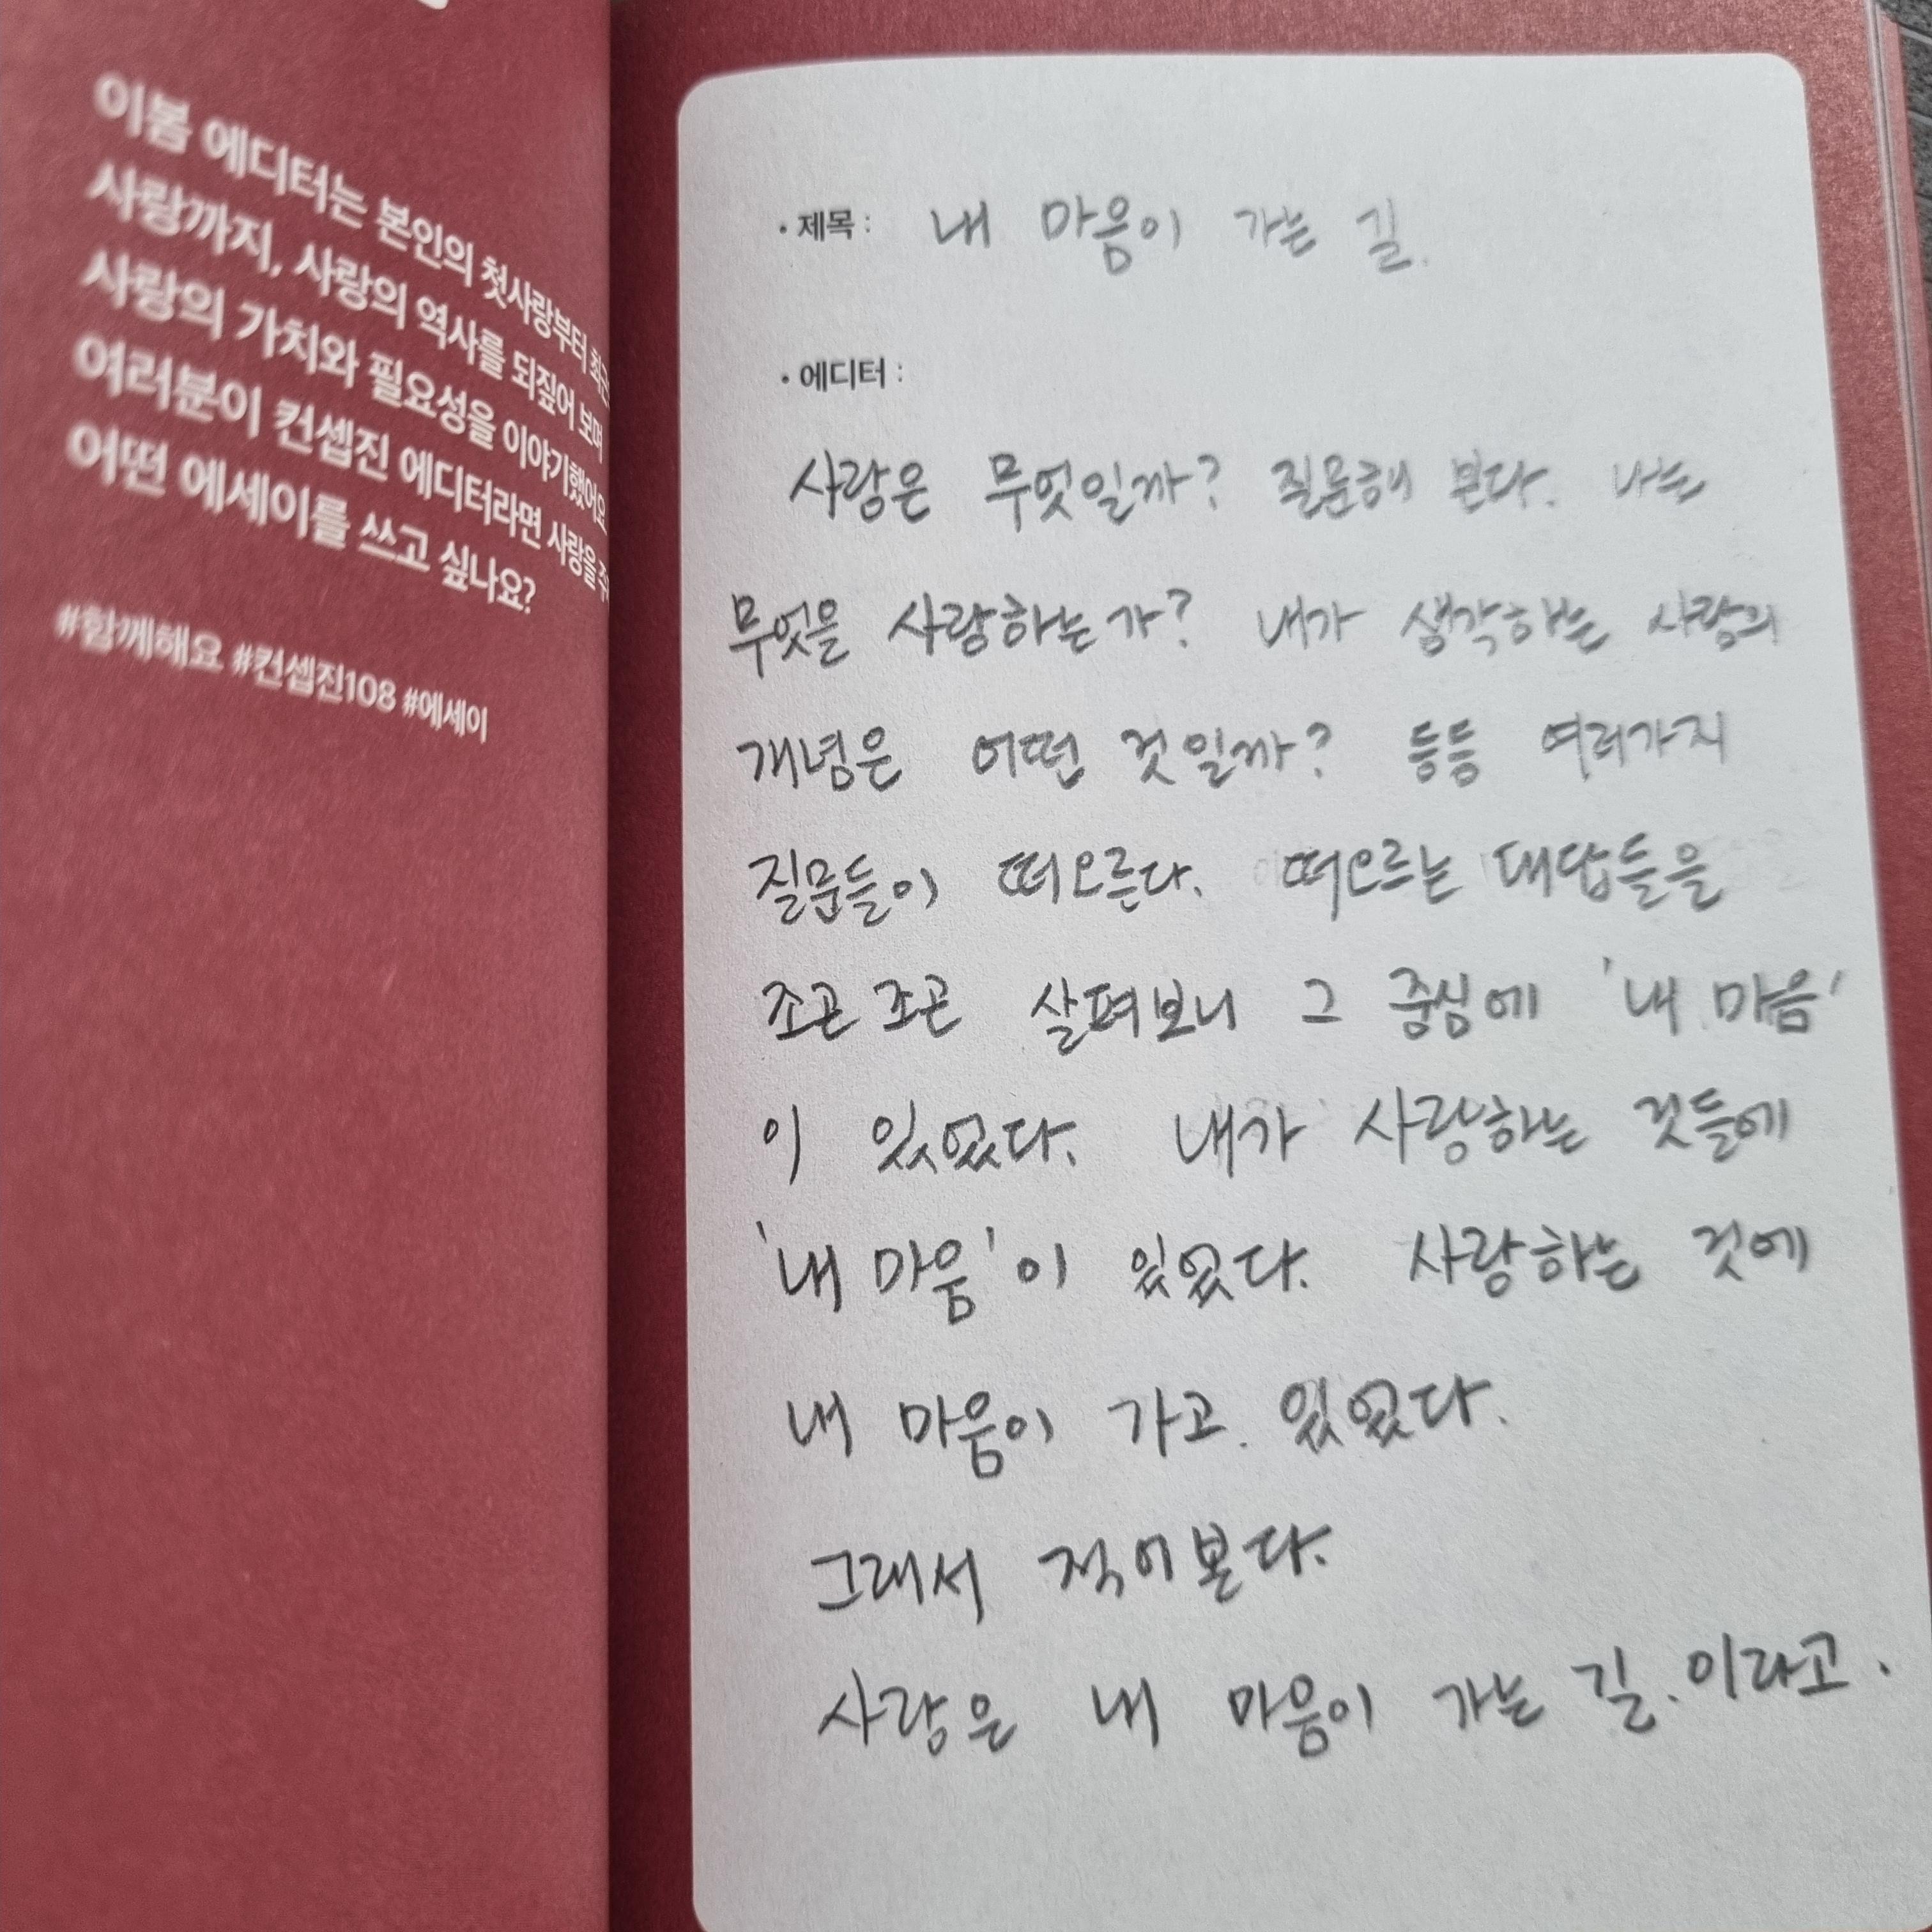 이봄 에디터는 본인의 첫사랑부터 최근
사랑까지, 사랑의 역사를 되짚어 보며
사랑의 가치와 필요성을 이야기했어요
여러분이 컨셉진 에디터라면 사랑을 주
어떤 에세이를 쓰고 싶나요?
#함께해요 #컨셉진108 #에세이
• 제목 : 내 마음이 가는 길.
• 에디터 :
사랑은 무엇일까? 질문해 본다. 나는
무엇을 사랑하는가? 내가 생각하는 사랑의
개념은 어떤 것일까? 등등 여러가지
질문들이 떠오른다. 떠오르는 대답들을
조곤조곤 살펴보니 그 중심에 '내 마음'
이 있었다. 내가 사랑하는 것들에
'내 마음'이 있었다. 사랑하는 것에
내 마음이 가고 있었다.
그래서 적어본다.
사랑은 내 마음이 가는 길.이라고.